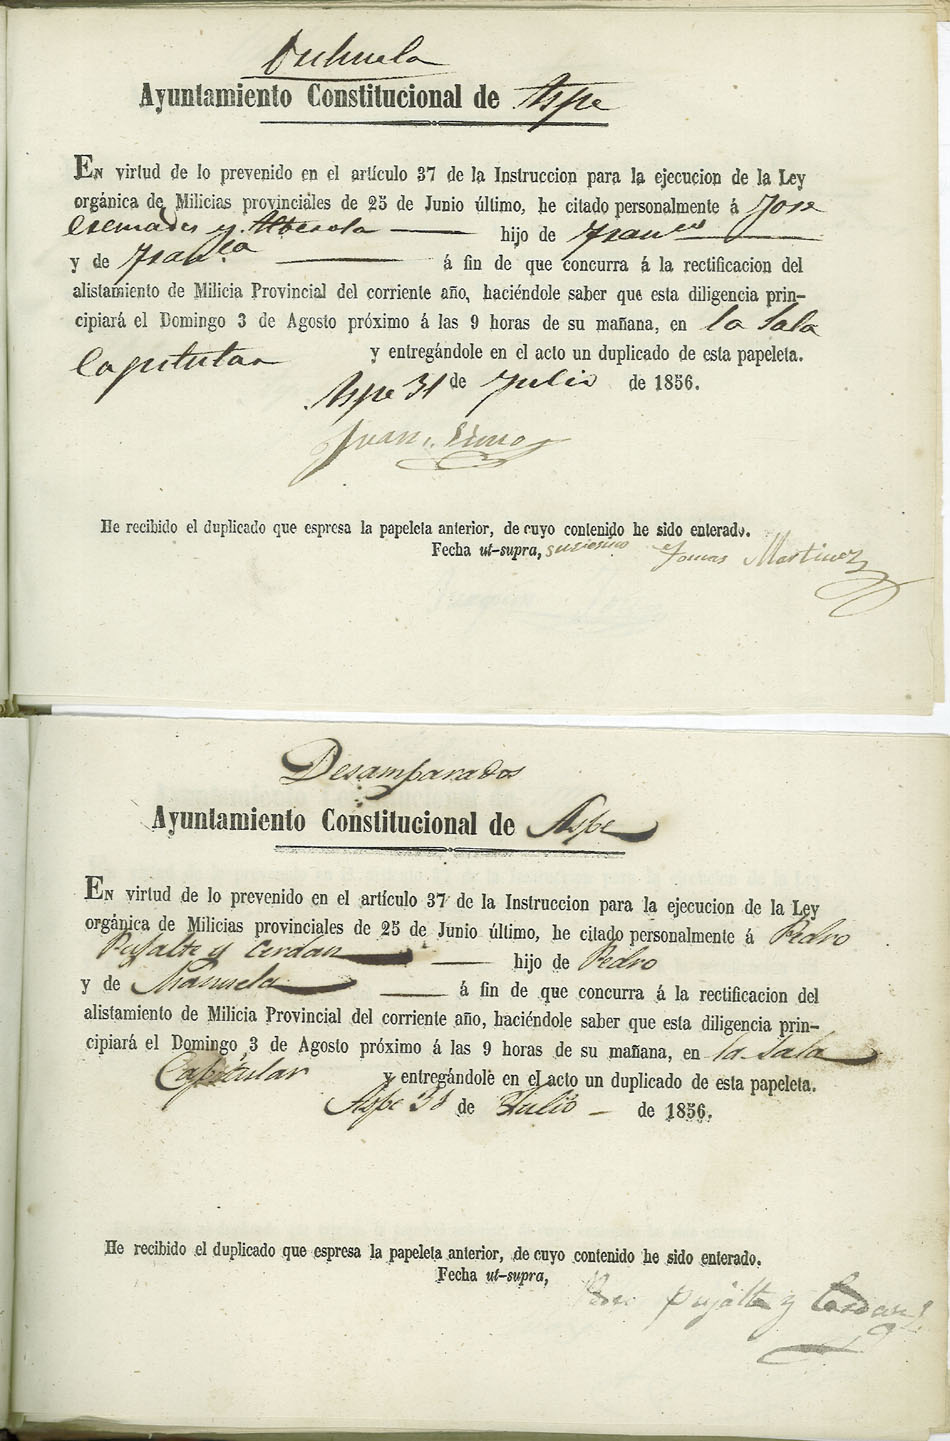 Orihuela
Ayuntamiento Constitucional de Aspe
EN virtud de lo prevenido en el artículo 37 de la Instruccion para la ejecucion de la Ley
orgánica de Milicias provinciales de 25 de Junio último, he citado personalmente á Jose
Cremades y Alberola hijo de Franco
y de Franca á fin de que concurra á la rectificacion del
alistamiento de Milicia Provincial del corriente año, haciéndole saber que esta diligencia prin-
cipiará el Domingo 3 de Agosto próximo á las 9 horas de su mañana, en la Sala
Capitular y entregándole en el acto un duplicado de esta papeleta.
Aspe 31 de Julio de 1856.
Juan
He recibido el duplicado que espresa la papeleta anterior, de cuyo contenido he sido enterado.
Fecha ut-supra, Tomas Martinez
Desamparados
Ayuntamiento Constitucional de Aspe
EN virtud de lo prevenido en el artículo 37 de la Instruccion para la ejecucion de la Ley
orgánica de Milicias provinciales de 25 de Junio último, he citado personalmente á Pedro
Pujalte y Cerdan hijo de Pedro
y de Manuela á fin de que concurra á la rectificacion del
alistamiento de Milicia Provincial del corriente año, haciéndole saber que esta diligencia prin-
cipiará el Domingo 3 de Agosto próximo á las 9 horas de su mañana, en la Sala
Capitular y entregándole en el acto un duplicado de esta papeleta.
Aspe 31 de Julio de 1856.
He recibido el duplicado que espresa la papeleta anterior, de cuyo contenido he sido enterado.
Fecha ut-supra,
pujalte y Cerdan